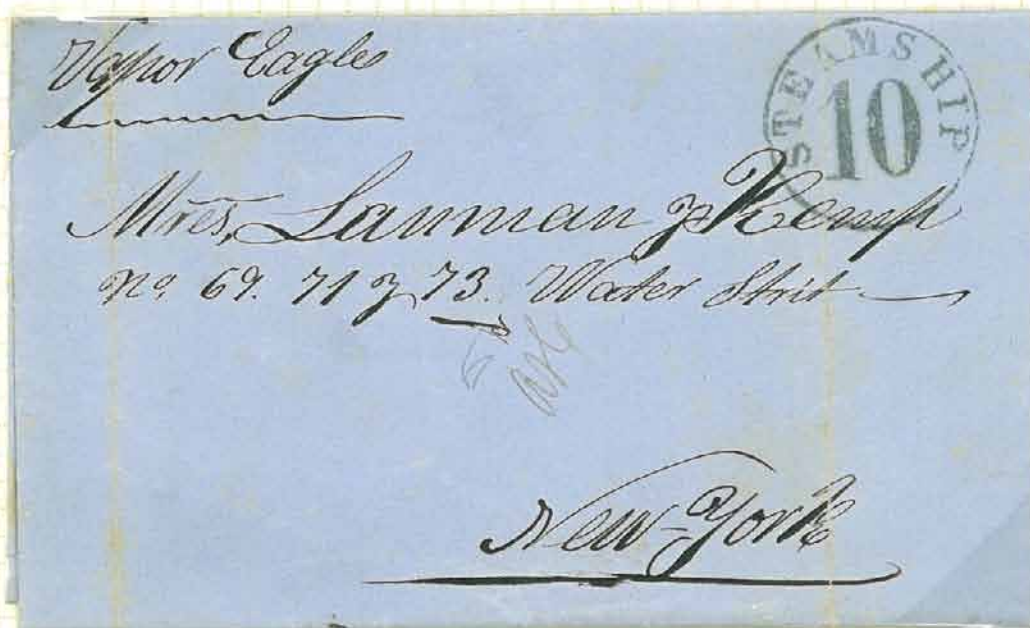 Vapor Eagle
STEAMSHIP
10
Mres, Lanman y Kemp
No 69. 71 y 73. Water Strit
New-York